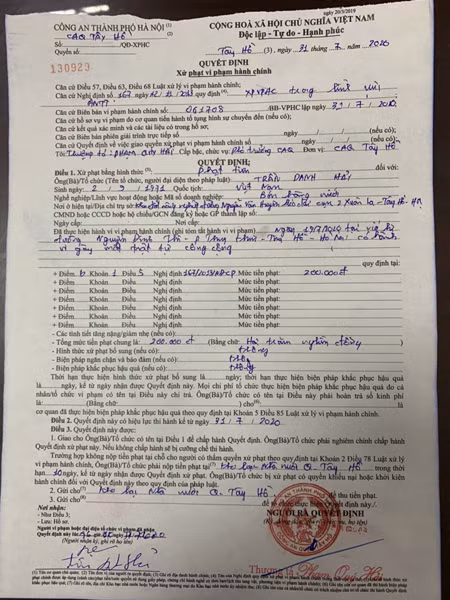 ngày 20/5/2019
CÔNG AN THÀNH PHỐ HÀ NỘI (1)
CỘNG HOÀ XÃ HỘI CHỦ NGHĨA VIỆT NAM
CAQ TÂY HỒ (2)
Độc lập - Tự do - Hạnh phúc
Số: /QĐ-XPHC
Quyển số:
Tây Hồ (3), ngày 31 tháng 7 năm 2020
130923
QUYẾT ĐỊNH
Xử phạt vi phạm hành chính
Căn cứ Điều 57, Điều 63, Điều 68 Luật xử lý vi phạm hành chính;
Căn cứ Nghị định số 167 quy định (4) XPVPHC trong lĩnh vực
ANTT
Căn cứ Biên bản vi phạm hành chính số: 061708 /BB-VPHC lập ngày 31/7/2020
Căn cứ hồ sơ vụ vi phạm do cơ quan tiến hành tố tụng hình sự chuyển đến (nếu có);
Căn cứ kết quả xác minh và các tài liệu có trong hồ sơ;
Căn cứ Biên bản phiên giải trình trực tiếp số (nếu có);
Căn cứ Quyết định về việc giao quyền xử phạt vi phạm hành chính số (nếu có);
Tôi: Cấp bậc, chức vụ: Phó trưởng CAQ Đơn vị: CAQ Tây Hồ
QUYẾT ĐỊNH:
Điều 1. Xử phạt bằng hình thức (5) Phạt tiền đối với:
Ông(Bà)/Tổ chức (Tên tổ chức, người đại diện theo pháp luật): TRẦN DANH HẢI
Sinh ngày: 2/9/1971 Quốc tịch: Việt Nam
Nghề nghiệp/Lĩnh vực hoạt động hoặc Mã số doanh nghiệp: Bán hàng nước
Nơi ở hiện tại/Địa chỉ trụ sở
CMND hoặc CCCD hoặc hộ chiếu/GCN đăng ký hoặc GP thành lập số:
Ngày cấp: Nơi cấp:
Đã thực hiện hành vi vi phạm hành chính: (ghi tóm tắt hành vi vi phạm): ngày
đường Nguyễn Đình Thi - P Thụy Khuê - Tây Hồ - Hà Nội có hành
vi gây mất trật tự công cộng
quy định tại:
+ Điểm b Khoản 1 Điều 5 Nghị định 167/2013/NĐ-CP Mức tiền phạt: 200.000đ
+ Điểm Khoản Điều Nghị định Mức tiền phạt:
+ Điểm Khoản Điều Nghị định Mức tiền phạt:
+ Điểm Khoản Điều Nghị định Mức tiền phạt:
- Các tình tiết tăng nặng/giảm nhẹ (nếu có):
- Tổng mức tiền phạt chung là: 200.000 đ (Bằng chữ: Hai trăm nghìn đồng)
- Hình thức xử phạt bổ sung (nếu có): không
- Biện pháp ngăn chặn và bảo đảm (nếu có): không
- Biện pháp khắc phục hậu quả (nếu có): không
Thời hạn thực hiện hình thức xử phạt bổ sung là ngày; thời hạn thực hiện biện pháp khắc phục hậu quả
là ngày, kể từ ngày nhận được Quyết định này. Mọi chi phí tổ chức thực hiện biện pháp khắc phục hậu quả do cá
nhân/tổ chức vi phạm có tên tại Điều này chi trả. Ông(Bà)/Tổ chức có tên tại Điều này phải hoàn trả số kinh phí
là (Bằng chữ ) cho (6)
cơ quan đã thực hiện biện pháp khắc phục hậu quả theo quy định tại Khoản 5 Điều 85 Luật xử lý vi phạm hành chính.
Điều 2. Quyết định này có hiệu lực thi hành kể từ ngày 31/7/2020
Điều 3. Quyết định này được:
1. Giao cho Ông(Bà)/Tổ chức có tên tại Điều 1 để chấp hành Quyết định. Ông(Bà)/Tổ chức phải nghiêm chỉnh chấp hành
Quyết định xử phạt này. Nếu không chấp hành sẽ bị cưỡng chế thi hành.
Trường hợp không nộp tiền phạt tại chỗ theo quy định tại Khoản 2 Điều 78 Luật xử lý vi
phạm hành chính, Ông(Bà)/Tổ chức phải nộp tiền phạt tại (7) kho bạc Nhà nước Q. Tây Hồ trong thời
hạn 10 ngày, kể từ ngày nhận được Quyết định xử phạt. Ông(Bà)/Tổ chức bị xử phạt có quyền khiếu nại hoặc khởi
kiện hành chính đối với Quyết định này theo quy định của pháp luật.
2. Gửi cho (7) Kho bạc Nhà nước Q. Tây Hồ để thu tiền phạt.
3. Gửi cho (8) để tổ chức thực hiện Quyết định này./.
Nơi nhận:
- Như Điều 3;
- Lưu: Hồ sơ.
NGƯỜI RA QUYẾT ĐỊNH
Người vi phạm hoặc đại diện tổ chức vi phạm đã nhận
Quyết định này lúc
Thượng tá Phạm Quý Hải